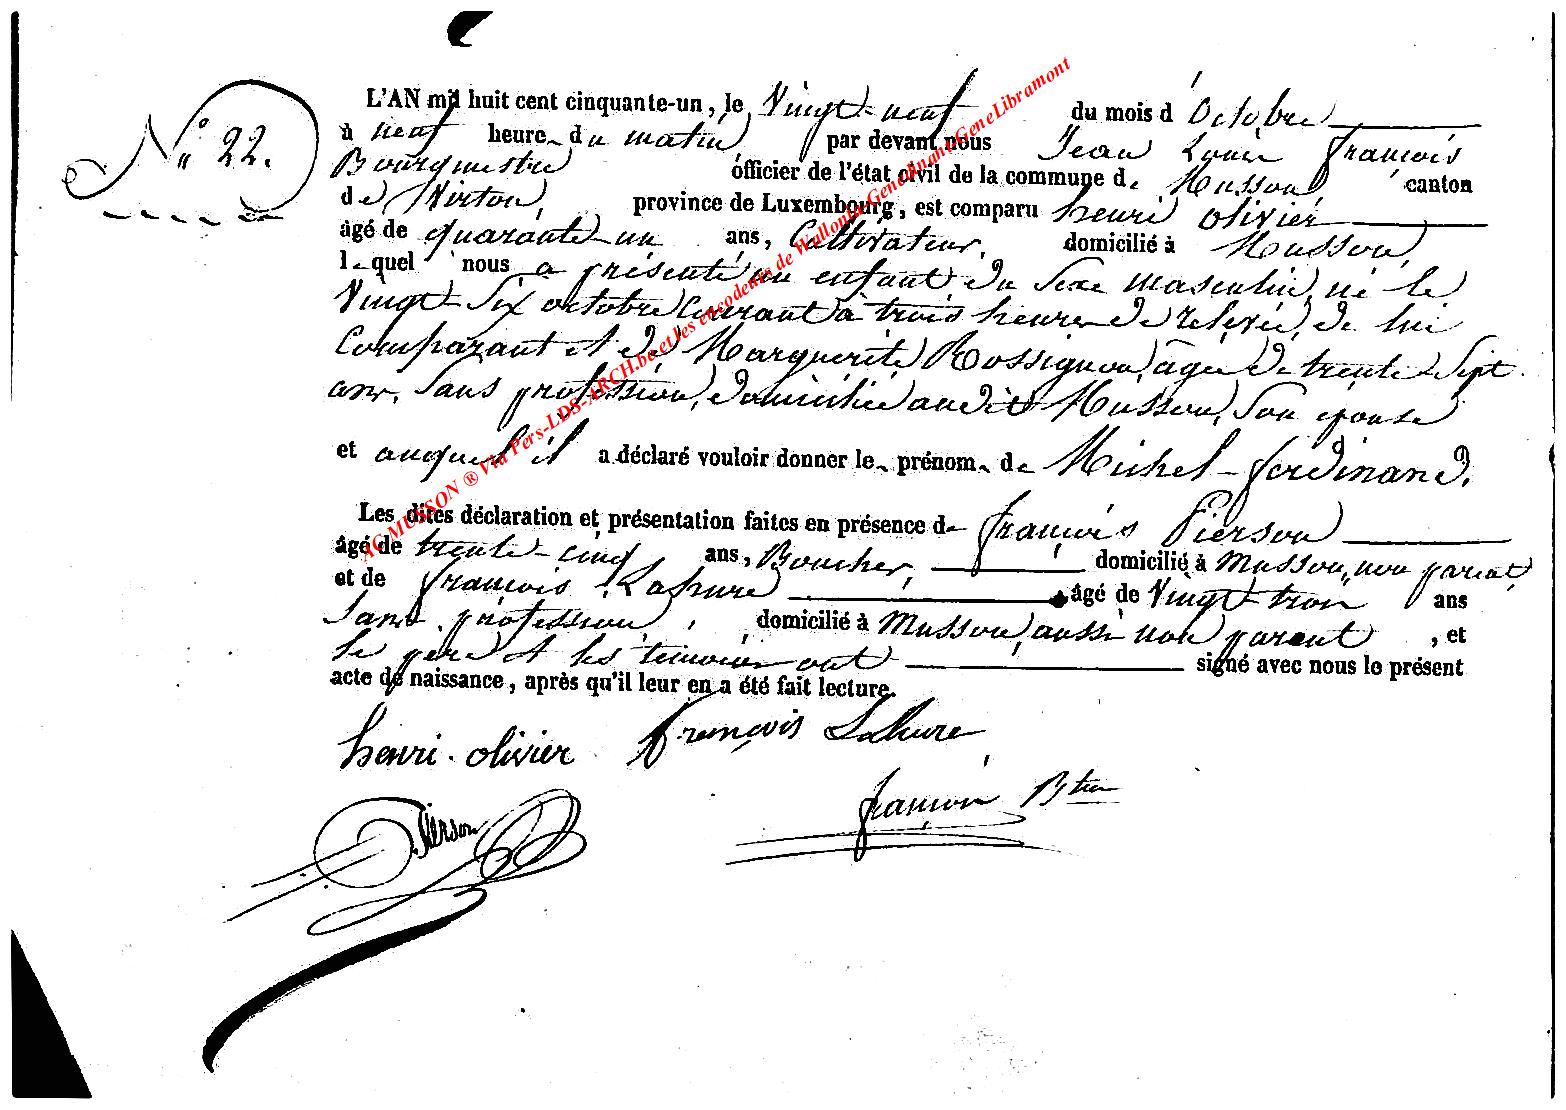 N.° 22.
L'AN mil huit cent cinquante-un, le Vingt-neuf du mois d'Octobre
à neuf heures du matin par devant nous Jean Louis françois
Bourgmestre officier de l'état civil de la commune de Musson canton
de Virton, province de Luxembourg, est comparu henri olivier
âgé de quarante-un ans, Cultivateur, domicilié à Musson,
lequel nous a présenté un enfant du sexe masculin, né le
Vingt-Six octobre Courant à trois heures de relevée, de lui
Comparant et de Marguerite Rossignon, âgée de trente-Sept
ans, Sans profession, domiciliée audit Musson, Son épouse
et auquel il a déclaré vouloir donner le prénom de Michel-ferdinand.
Les dites déclaration et présentation faites en présence de françois Pierson
âgé de trente-cinq ans, Boucher, domicilié à Musson, non parent
et de françois Lahure âgé de Vingt-trois ans
Sans profession, domicilié à Musson, aussi non parent, et
le père et les témoins ont signé avec nous le présent
acte de naissance, après qu'il leur en a été fait lecture.
henri olivier françois Lahure
Pierson
françois Btre
AG MUSSON ® Via Pers-LDS-ARCH.be et les encodeurs de Wallonia-Genedinant-GeneLibramont